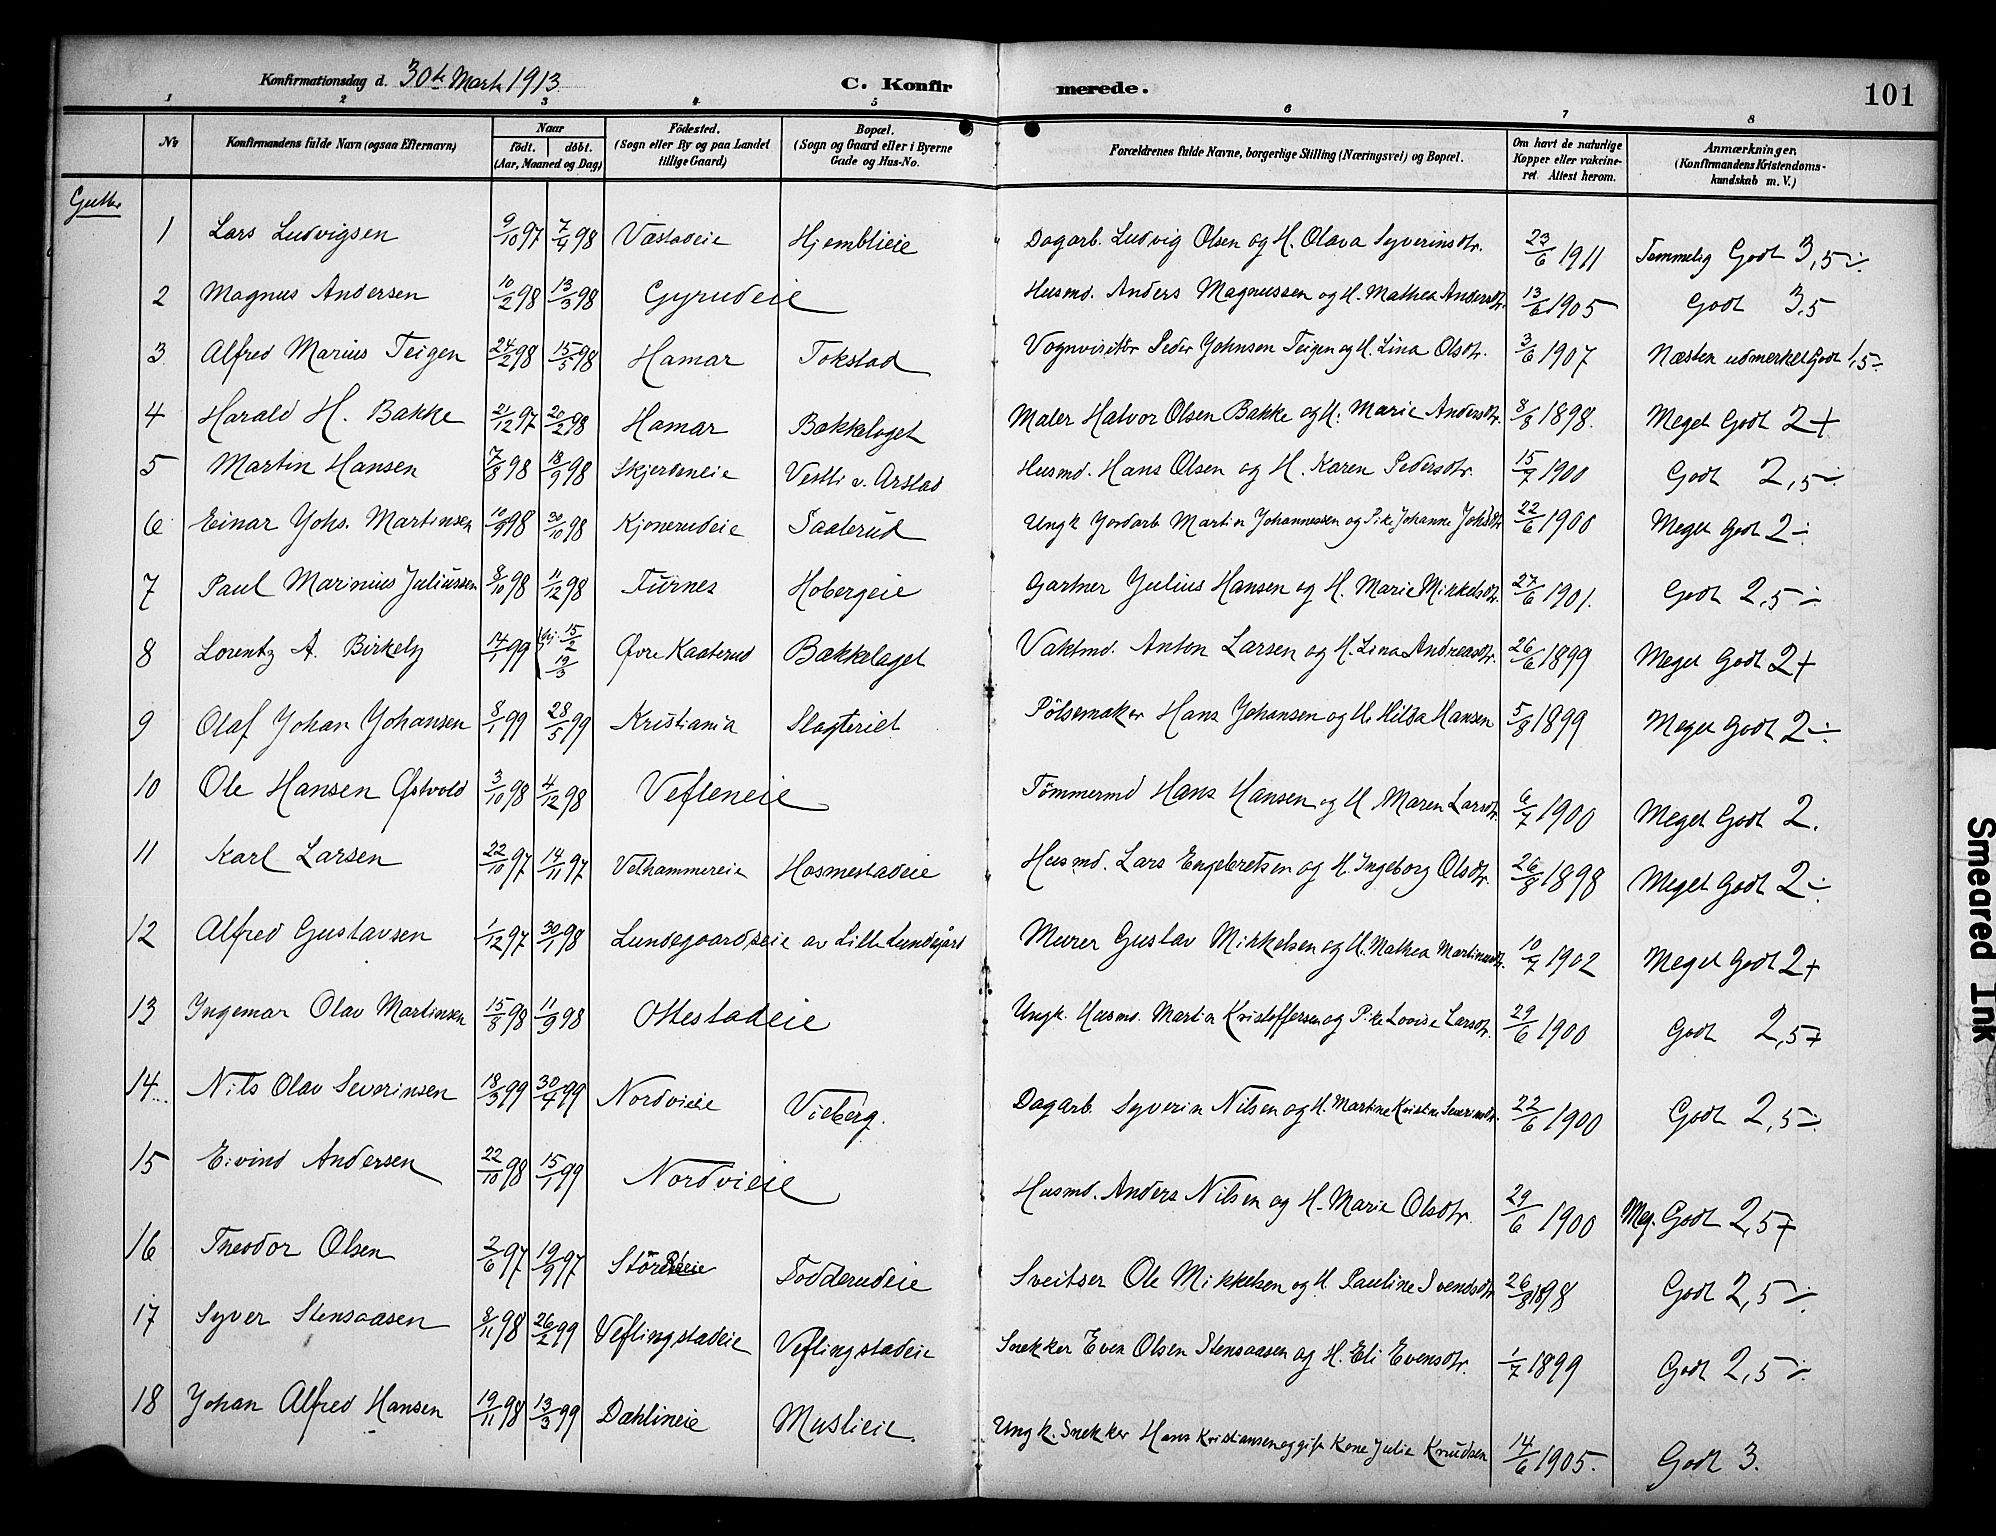 Konfirmationsdag d. 30te Marts 1913 C. Konfirmerede. 101
1 2 3 4 5 6 7 8
No Konfirmandens fulde Navn (ogsaa Efternavn) Naar født. døbt. (Aar, Maaned og Dag) Fødested. (Sogn eller By og paa Landet tillige Gaard) Bopæl. (Sogn og Gaard eller i Byerne Gade og Hus-No. Forældrenes fulde Navne, borgerlige Stilling (Næringsvei) og Bopæl. Om havt de naturlige Kopper eller vakcineret. Attest herom. Anmærkninger. (Konfirmandens Kristendomskundskab m. V.)
Gutter
1 Lars Ludvigsen 9/10 97 7/4 98 Væstadeie Hjemblieie Dagarb. Ludvig Olsen og H. Olava Syverinsdtr. 23/6 1911 Temmelig Godt 3,5 ÷
2 Magnus Andersen 10/2 98 13/3 98 Gyrudeie Husmd. Anders Magnussen og H. Mathea Andersdtr. 13/6 1905 Godt 3,5
3 Alfred Marius Teigen 24/2 98 15/5 98 Hamar Tokstad Vognvisitør Peder Johnsen Teigen og H. Lina Olsdtr. 3/6 1907 Næsten udmerket Godt 1,5 ÷
4 Harald H. Bakke 21/12 97 20/2 98 Hamar Bækkelaget Maler Halvor Olsen Bakke og H. Marie Andersdtr. 8/8 1898. Meget Godt 2+
5 Martin Hansen 7/8 98 18/9 98 Skjerdeneie Vestli v. Arstad Husmd. Hans Olsen og H. Karen Pedersdtr. 15/7 1900 Godt 2,5 ÷
6 Einar Johs. Martinsen 10/9 98 30/10 98 Kjonerudeie Saaterud Ungk Jordarb Martin Johannessen og Pike Johanne Johsdtr 22/6 1900 Meget Godt 2 ÷
7 Paul Marinius Juliussen 8/10 98 11/12 98 Furnes Hobergeie Gartner Julius Hansen og H. Marie Mikkelsdtr. 27/6 1901. Godt 2,5 ÷
8 Lorentz A. Birkely 14/1 99 15/2 19/3 Øvre Kaaterud Bækkelaget Vaktmd. Anton Larsen og H. Lina Andreasdtr. 26/6 1899 Meget Godt 2+
9 Olaf Johan Johansen 8/1 99 28/5 99 Kristiania Slagteriet Pölsemaker Hans Johansen og H. Hilda Hansen 5/8 1899 Meget Godt 2 ÷
10 Ole Hansen Østvold 3/10 98 4/12 98 Vefleneie Tömmermd Hans Hansen og H Maren Larsdtr. 6/7 1900 Meget Godt 2.
11 Karl Larsen 22/10 97 14/11 97 Vethammereie Hosmestadeie Husmd. Lars Engebretsen og H. Ingeborg Olsdtr. 26/8 1898 Meget Godt 2 ÷
12 Alfred Gustavsen 1/12 97 30/1 98 Lundegaardseie av Lille Lundegård Murer Gustav Mikkelsen og H. Mathea Martinusdtr. 10/7 1902 Meget Godt 2+
13 Ingemar Olav Martinsen 15/8 98 11/9 98 Ottestadeie Ungk. Husmd. Martin Kristoffersen og Pike Lovise Larsdtr. 29/6 1900 Godt 2,5+
14 Nils Olav Severinsen 18/3 99 30/4 99 Nordvieie Vieberg. Dagarb. Syverin Nilsen og H. Martine Kristine Severinsdtr. 22/6 1900 Godt 2,5 ÷
15 Eivind Andersen 22/10 98 15/1 99 Nordvieie Husmd. Anders Nilsen og H. Marie Olsdtr. 29/6 1900 Meg. Godt 2,5+
16 Theodor Olsen 2/6 97 19/9 97 Fodderudeie Sveitser Ole Mikkelsen og H. Pauline Svendsdtr 26/8 1898 Godt 2,5 ÷
17 Syver Stensaasen 8/11 98 26/2 99 Veflingstadeie Veflingstadeie Snekker Even Olsen Stensaasen og H. Eli Evensdtr. 1/7 1899 Godt 2,5 ÷
18 Johan Alfred Hansen 19/11 98 13/3 99 Dæhlineie Muslieie. Ungk. Snekker Hans Kristiansen og gift Kone Julie Knudsen 14/6 1905. Godt 3.
Smeared Ink